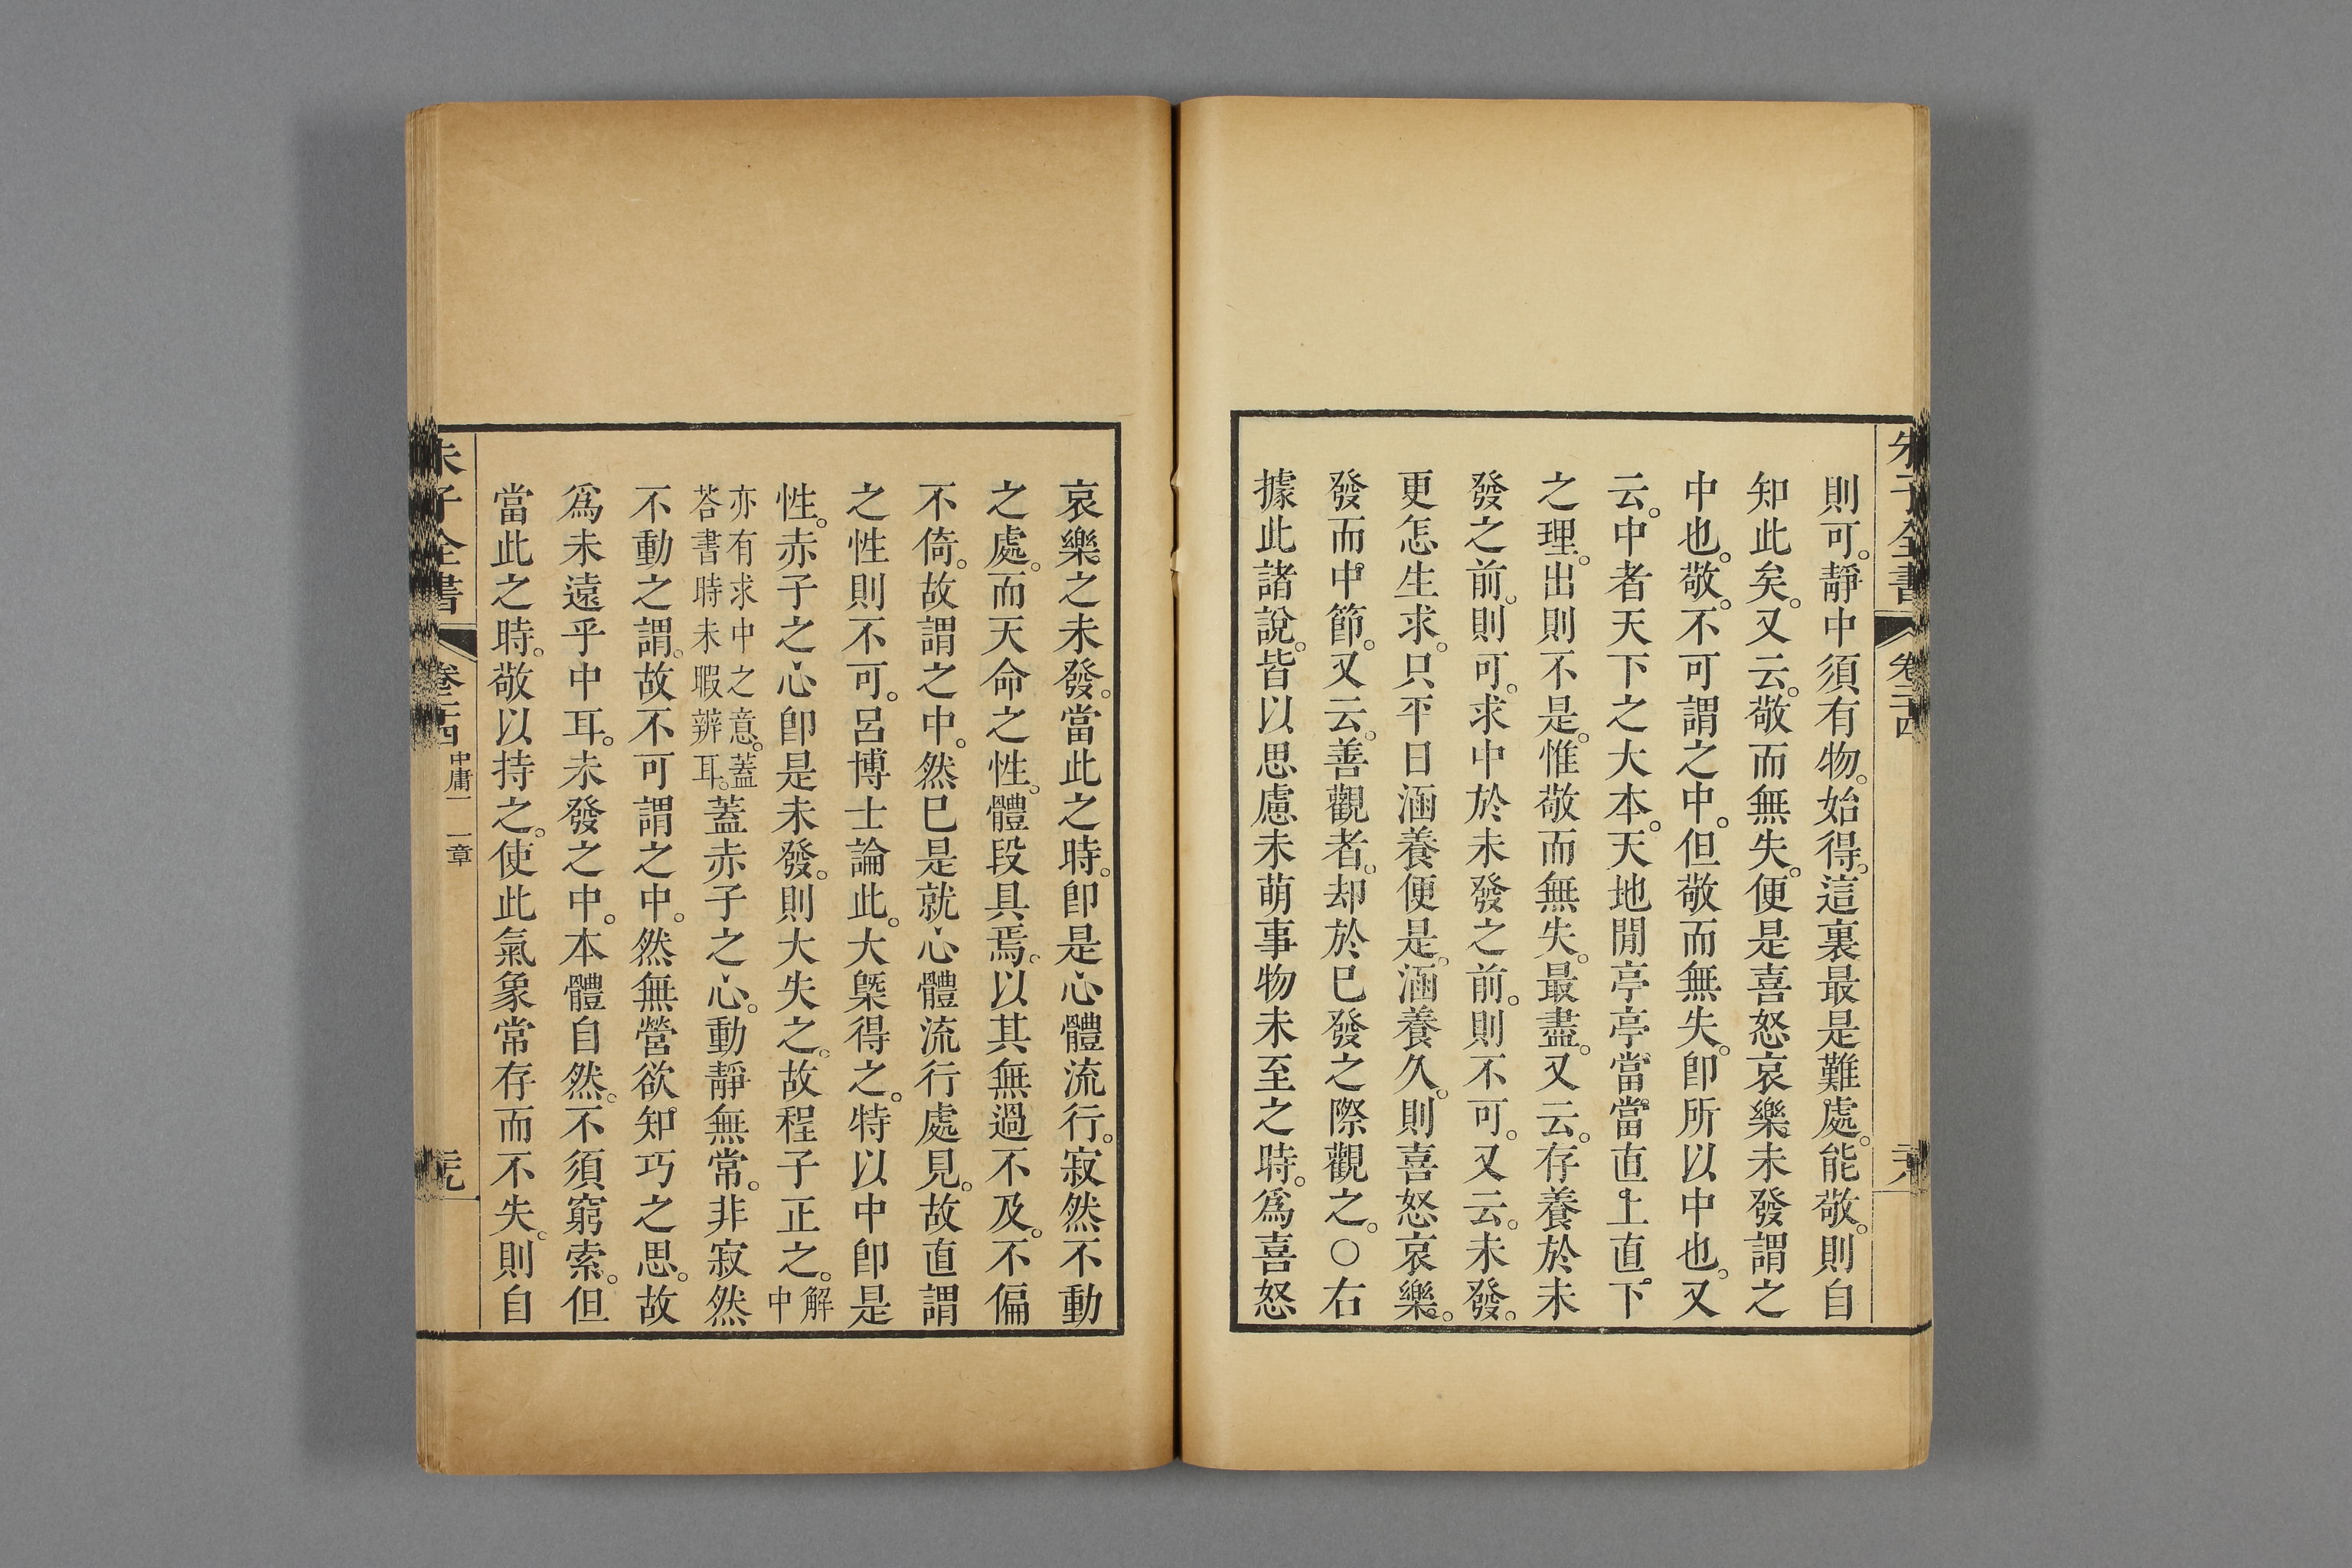 朱子全書 卷二十四 二十八
則可。靜中須有物。始得。這裏最是難處。能敬。則自
知此矣。又云。敬而無失。便是喜怒哀樂未發謂之
中也。敬。不可謂之中。但敬而無失。卽所以中也。又
云。中者天下之大本。天地閒亭亭當當直上直下
之理。出則不是。惟敬而無失。最盡。又云。存養於未
發之前。則可。求中於未發之前。則不可。又云。未發。
更怎生求。只平日涵養便是。涵養久。則喜怒哀樂。
發而中節。又云。善觀者。却於已發之際觀之。○右
據此諸說。皆以思慮未萌事物未至之時。爲喜怒
哀樂之未發。當此之時。卽是心體流行。寂然不動
之處。而天命之性。體段具焉。以其無過不及。不偏
不倚。故謂之中。然已是就心體流行處見。故直謂
之性則不可。呂博士論此。大槩得之。特以中卽是
性。赤子之心卽是未發。則大失之。故程子正之。解中
亦有求中之意。蓋
荅書時未暇辨耳。蓋赤子之心。動靜無常。非寂然
不動之謂。故不可謂之中。然無營欲知巧之思。故
爲未遠乎中耳。未發之中。本體自然。不須窮索。但
當此之時。敬以持之。使此氣象常存而不失。則自
朱子全書 卷二十四 中庸一 一章 二十九